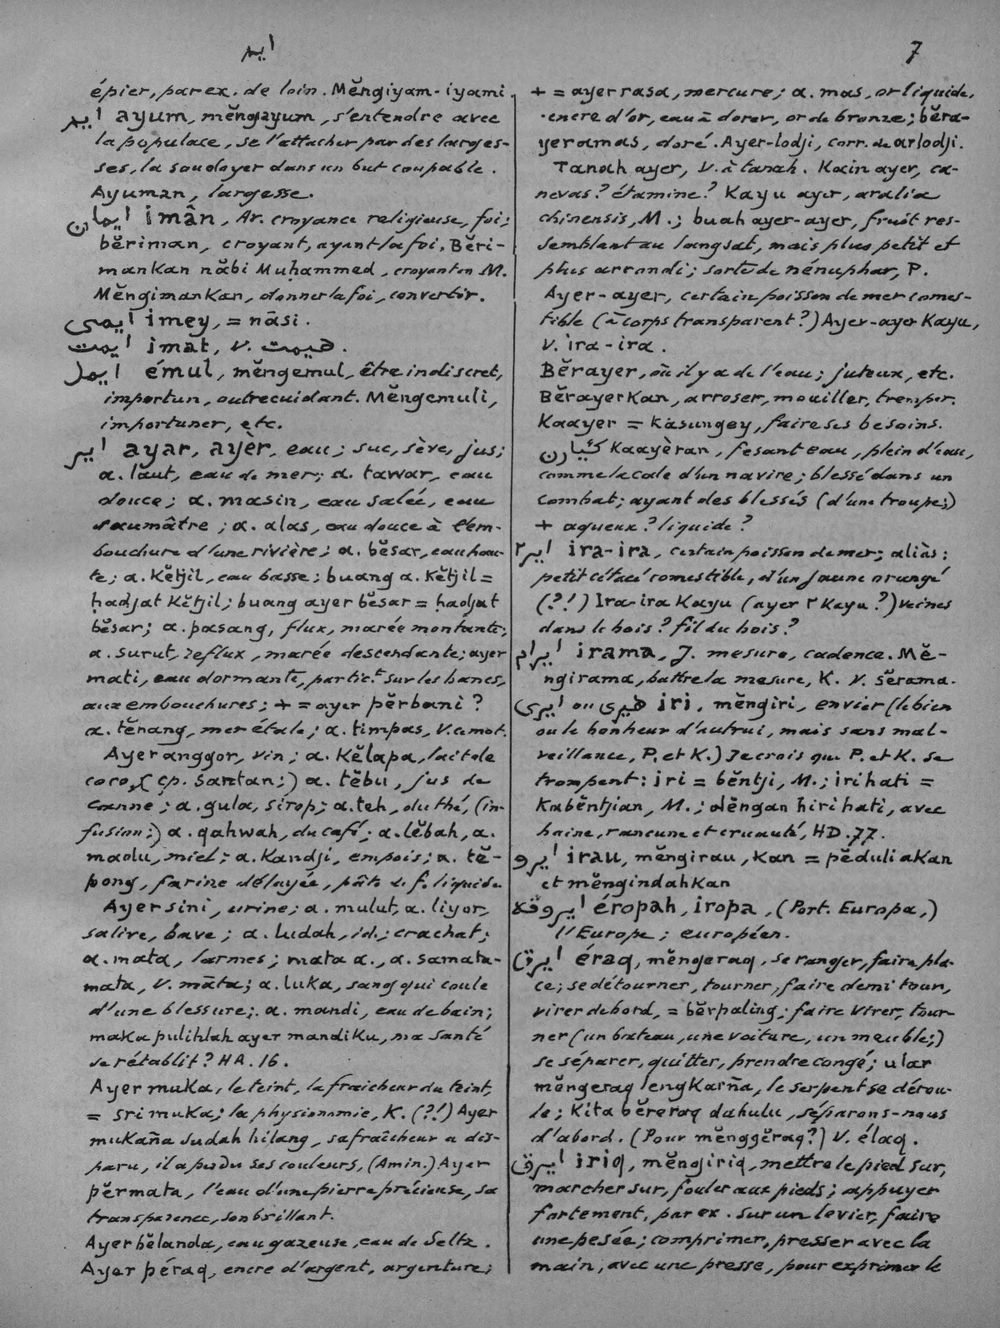 اير
7
épier, par ex. de loin. Mĕngiyam-iyami.
ايم ayum, mĕngayum, s'entendre avec
la populace, se l'attacher par des larges-
ses, la soudoyer dans un but coupable.
Ayuman, largesse.
ايمان imân, Ar. croyance religieuse, foi;
bĕriman, croyant, ayant la foi. Bĕri-
mankan năbi Muḥammed, croyant en M.
Mĕngimankan, donner la foi, convertir.
ايمى imey, = nāsi.
ايمت imat, v. هيمت.
ايمل émul, mĕngemul, être indiscret,
importun, outrecuidant. Mĕngemuli,
importuner, etc.
اير ayar, ayèr, eau; suc, sève, jus;
a. laut, eau de mer; a. tawar, eau
douce; a. masin, eau salée, eau
saumâtre; a. alas, eau douce à l'em-
bouchure d'une rivière; a. bĕsar, eau hau-
te; a. kĕtjil, eau basse; buang a. kĕtjil =
ḥadjat kĕtjil; buang ayer bĕsar = ḥadjat
bĕsar; a. pasang, flux, marée montante;
a. surut, reflux, marée descendante; ayer
mati, eau dormante, partict sur les bancs,
aux embouchures; + = ayer pĕrbani?
a. tĕnang, mer étale; a. timpas, v. ce mot.
Ayer anggor, vin; a. kĕlapa, lait de
coco, (cp. santan;) a. tĕbu, jus de
canne; a. gula, sirop; a. teh, du thé, (in-
fusion;) a. qahwah, du café; a. lĕbah, a.
madu, miel; a. kandji, empois; a. tĕ-
pong, farine délayée, pâte de f. liquide.
Ayer sini, urine; a. mulut, a. liyor,
salive, bave; a. ludah, id.; crachat;
a. mata, larmes; mata a., a. samata-
mata, v. māta; a. luka, sang qui coule
d'une blessure; a. mandi, eau de bain;
maka pulihlah ayer mandiku, ma santé
se rétablit? HA. 16.
Ayer muka, le teint, la fraîcheur du teint,
= sri muka; la physionomie, K. (?!) Ayer
mukaña sudah hilang, sa fraîcheur a dis-
paru, il a perdu ses couleurs, (Amin.) Ayer
pĕrmata, l'eau d'une pierre précieuse, sa
transparence, son brillant.
Ayer bĕlanda, eau gazeuse, eau de Seltz.
Ayer péraq, encre d'argent, argenture;
+ = ayer rasa, mercure; a. mas, or liquide,
encre d'or, eau à dorer, or de bronze; bĕra-
yeramas, doré. Ayer-lodji, corr. de arlodji.
Tanah ayer, v. à tanah. Kain ayer, ca-
nevas? étamine? Kayu ayer, aralia
chinensis, M.; buah ayer-ayer, fruit res-
semblant au langsat, mais plus petit et
plus arrondi; sorte de nénuphar, P.
Ayer-ayer, certain poisson de mer comes-
tible (à corps transparent?) Ayer-ayer kayu,
v. ira-ira.
Bĕrayer, où il y a de l'eau; juteux, etc.
Bĕrayerkan, arroser, mouiller, tremper.
Kaayer = kasungey, faire ses besoins.
كئيارن kaayèran, fesant eau, plein d'eau,
comme la cale d'un navire; blessé dans un
combat; ayant des blessés (d'une troupe;)
+ aqueux? liquide?
اير٢ ira-ira, certain poisson de mer; aliàs:
petit cétacé comestible, d'un jaune orangé
(?!) Ira-ira kayu (ayer ٢ kayu?) veines
dans le bois? fil du bois?
ايرام irama, J. mesure, cadence. Mĕ-
ngirama, battre la mesure, K. v. sĕrama.
ايرى ou هيرى iri, mĕngiri, envier (le bien
ou le bonheur d'autrui, mais sans mal-
veillance, P. et K.) Je crois que P. et K. se
trompent: iri = bĕntji, M.; iri hati =
kabĕntjian, M.; dĕngan hiri hati, avec
haine, rancune et cruauté, HD. 77.
ايرو irau, mĕngirau, kan = pĕduliakan
et mĕngindahkan
ايروڤه éropah, iropa, (Port. Europa,)
l'Europe; européen.
ايرق éraq, mĕngeraq, se ranger, faire pla-
ce; se détourner, tourner, faire demi tour,
virer de bord, = bĕrpaling; faire virer, tour-
ner (un bateau, une voiture, un meuble;)
se séparer, quitter, prendre congé; ular
mĕngeraq lengkarña, le serpent se dérou-
le; kita bĕreraq dahulu, séparons-nous
d'abord. (Pour mĕnggĕraq?) v. élaq.
ايرق iriq, mĕngiriq, mettre le pied sur,
marcher sur, fouler aux pieds; appuyer
fortement, par ex. sur un levier, faire
une pesée; comprimer, presser avec la
main, avec une presse, pour exprimer le